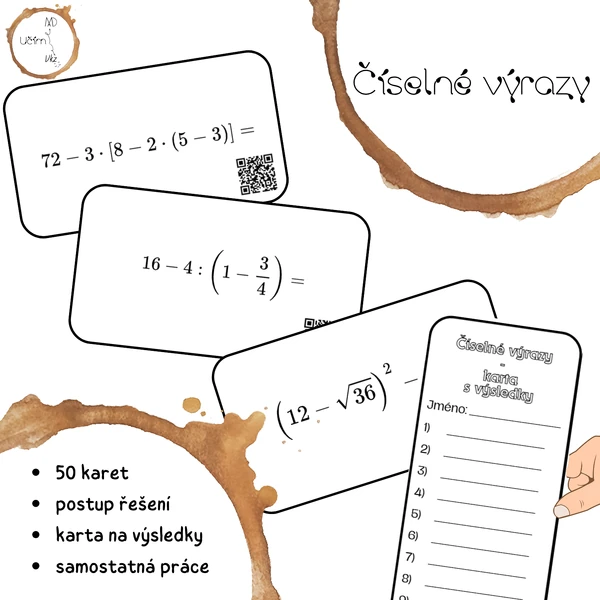 Učím
Číselné výrazy
72 − 3 · [8 − 2 · (5 − 3)] =
16 − 4 : (1 − 3/4) =
(12 − √36)² −
Číselné výrazy
-
karta
s výsledky
Jméno:
1)
2)
3)
4)
5)
6)
7)
8)
• 50 karet
• postup řešení
• karta na výsledky
• samostatná práce